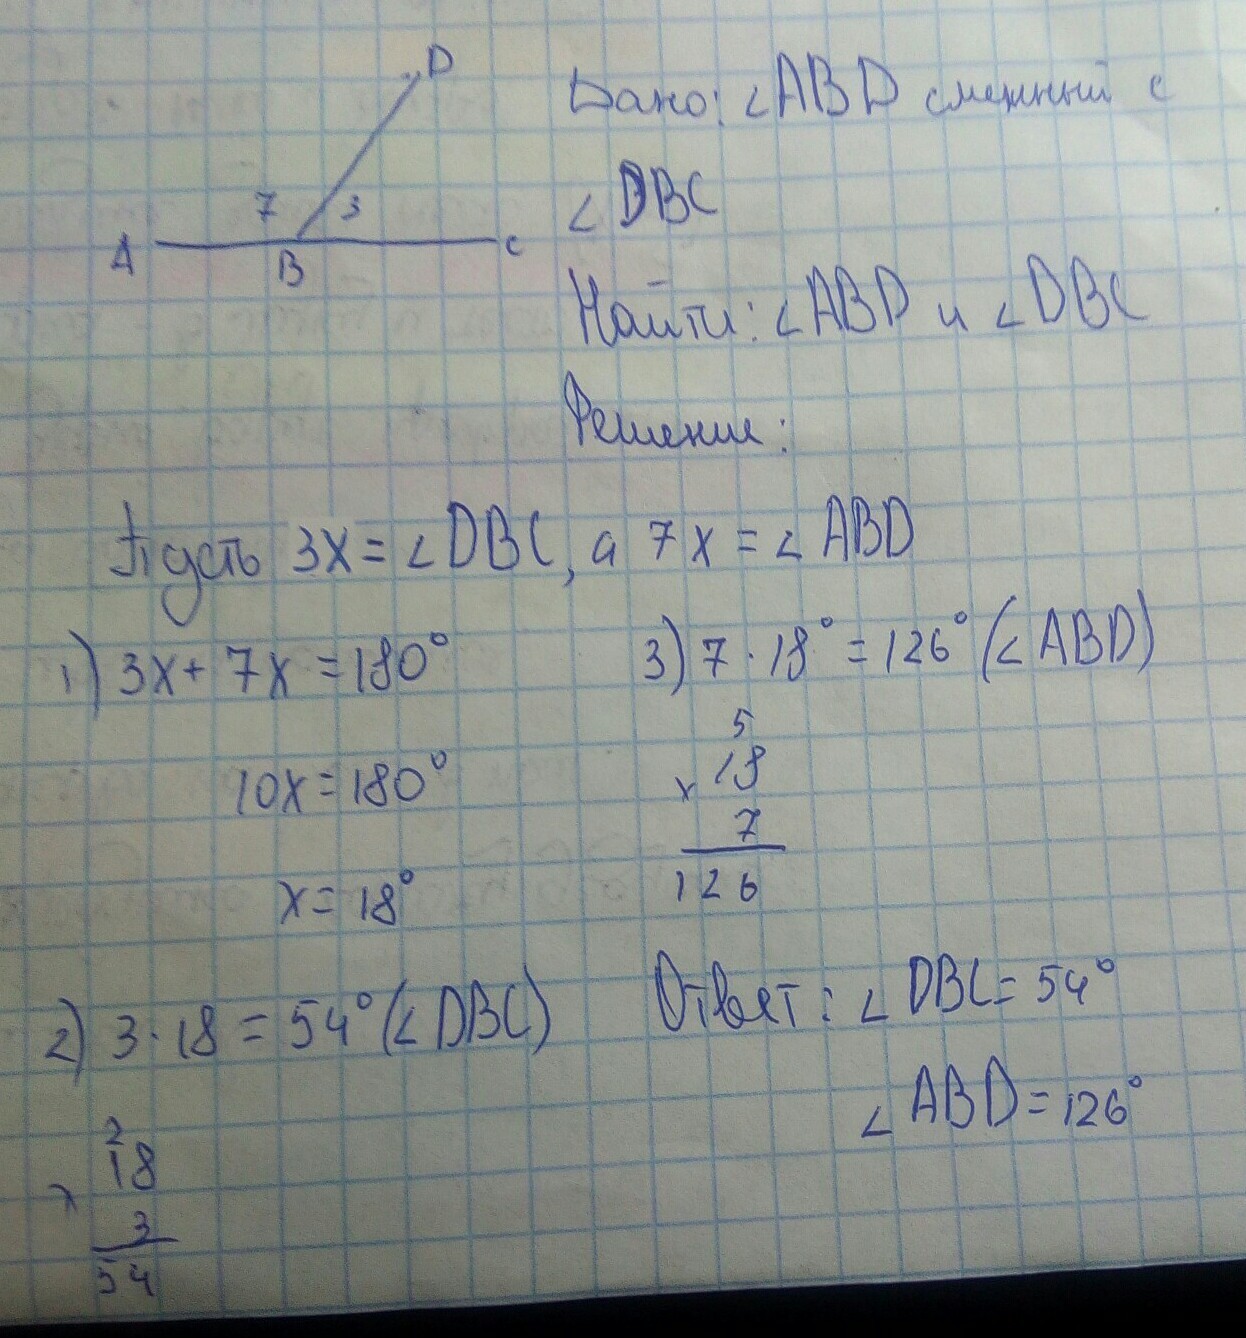 D
7 3
A B C
Дано: ∠ABD смежный с
∠DBC
Найти: ∠ABD и ∠DBC
Решение:
Пусть 3x = ∠DBC, а 7x = ∠ABD
1) 3x + 7x = 180°
10x = 180°
x = 18°
2) 3 · 18 = 54° (∠DBC)
2
18
x 3
54
3) 7 · 18° = 126° (∠ABD)
5
18
x 7
126
Ответ: ∠DBC = 54°
∠ABD = 126°